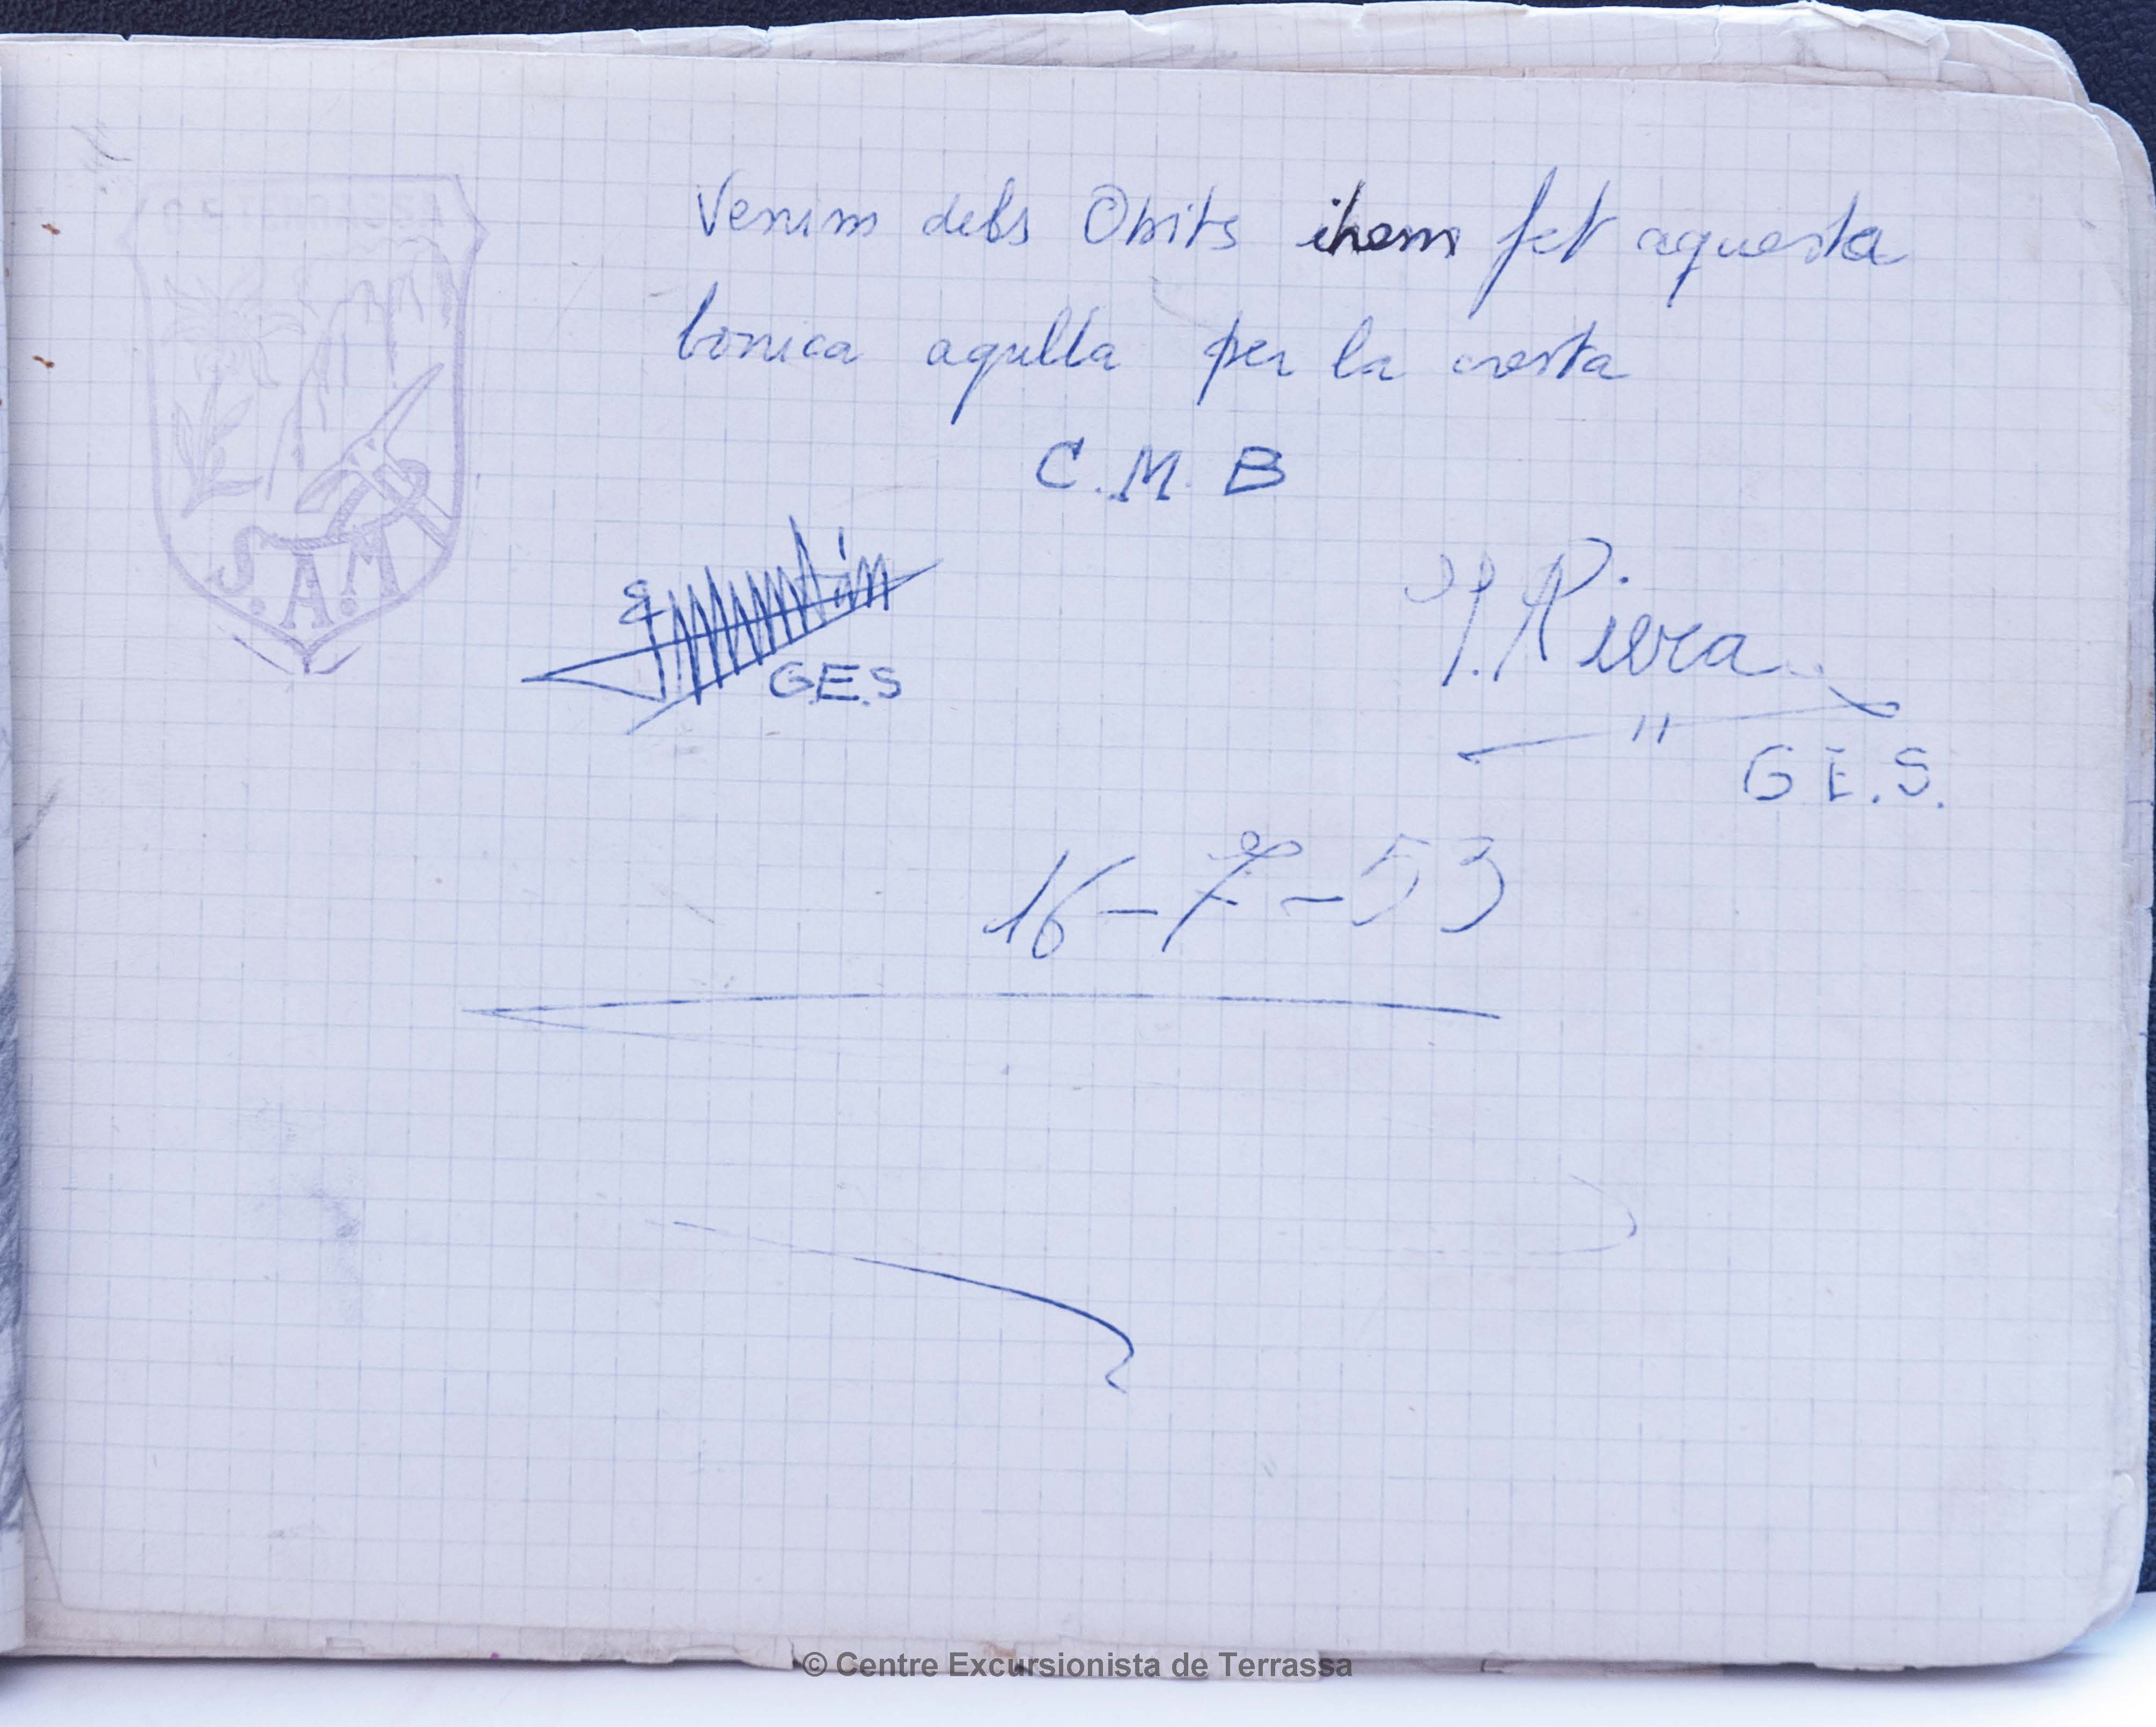 Venim dels Obits i hem fet aquesta
bonica agulla per la cresta
C.M.B
G.E.S
P. Riera
"
G.E.S.
16-7-53
S.A.M
© Centre Excursionista de Terrassa